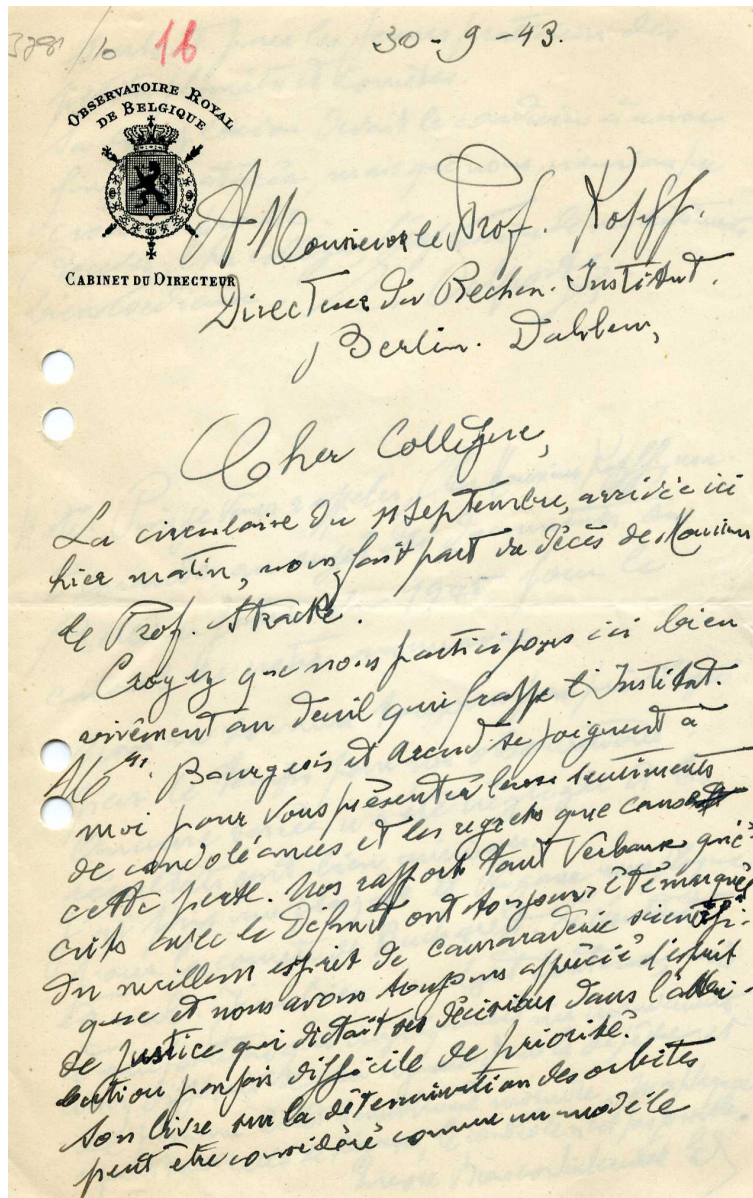 3281/10 16 30-9-43.
OBSERVATOIRE ROYAL
DE BELGIQUE
CABINET DU DIRECTEUR
A Monsieur le Prof. Kopff.
Directeur du Rechen. Institut.
Berlin. Dahlem,
Cher Collègue,
La circulaire du 11 septembre, arrivée ici
hier matin, nous fait part du décès de Monsieur
le Prof. Stracke.
Croyez que nous participons ici bien
vivement au deuil qui frappe l'Institut.
MMrs. Bourgeois et Arend se joignent à
moi pour vous présenter leurs sentiments
de condoléances et les regrets que cause
cette perte. Nos rapports tant verbaux qu'é-
crits avec le Défunt ont toujours été marqués
du meilleur esprit de camaraderie scientifi-
que et nous avons toujours apprécié l'esprit
de justice qui dictait ses décisions dans l'attri-
bution parfois difficile de priorité.
Son livre sur la détermination des orbites
peut être considéré comme un modèle